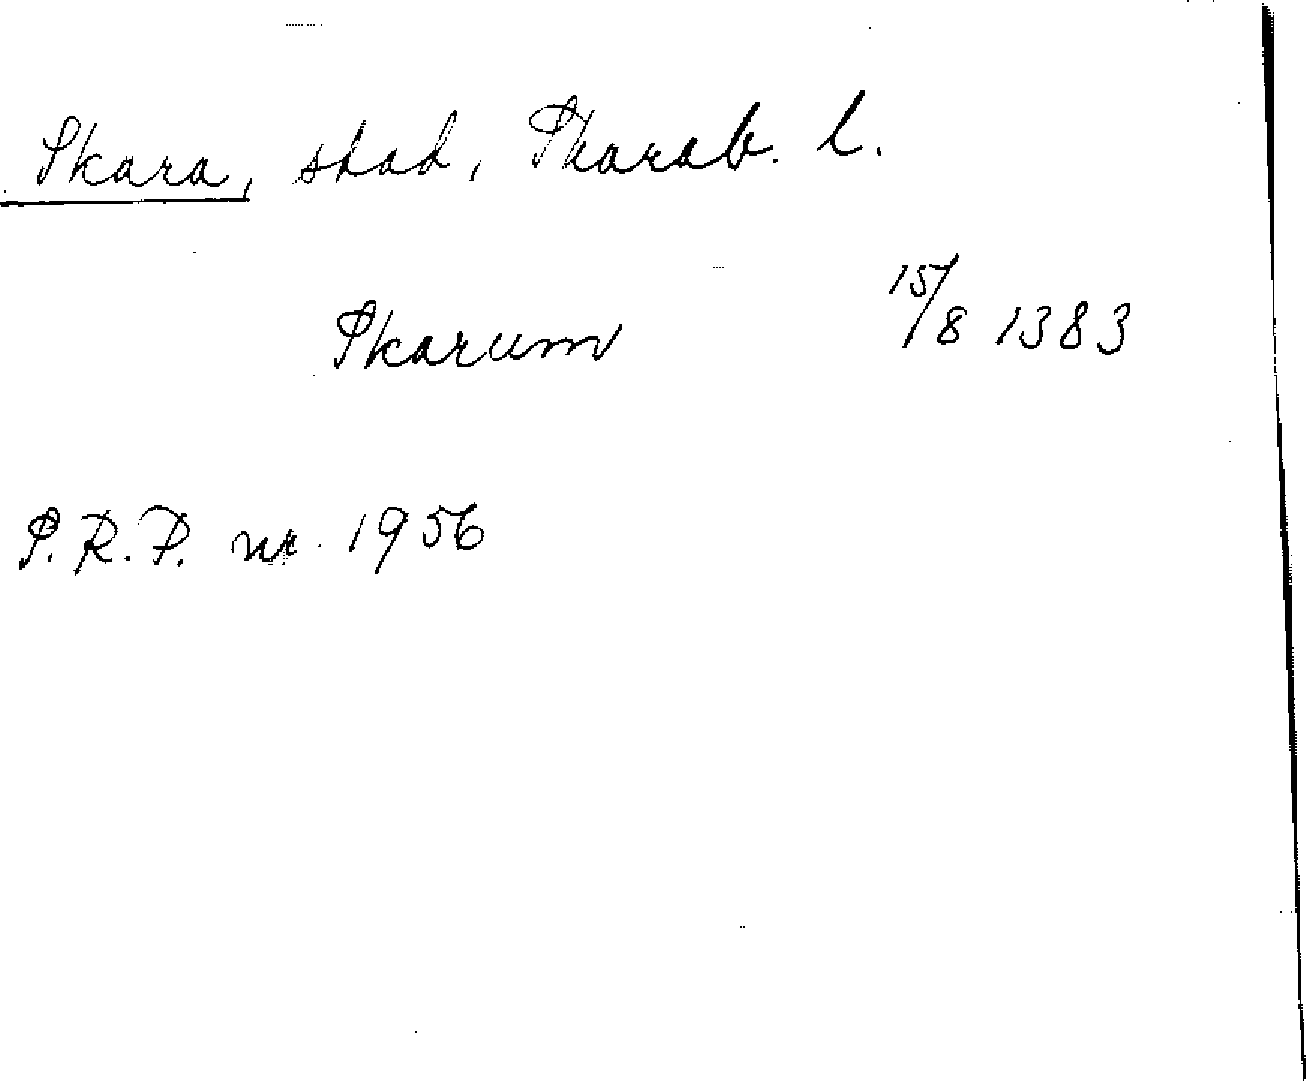 Skara, stad, Skarab. l.
Skarum 15/8 1383
S.R.P. nr. 1956